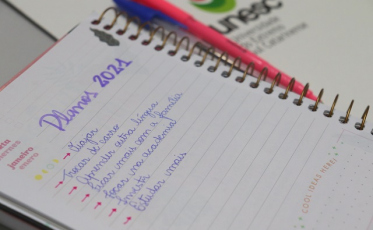 unesc
Planos 2021
→ Viajar
→ Trocar de carro
→ Aprender outra língua
→ Ficar mais com a família
→ Focar na academia
→ Investir
→ Estudar mais
janeiro
enero
COOL IDEAS HERE!